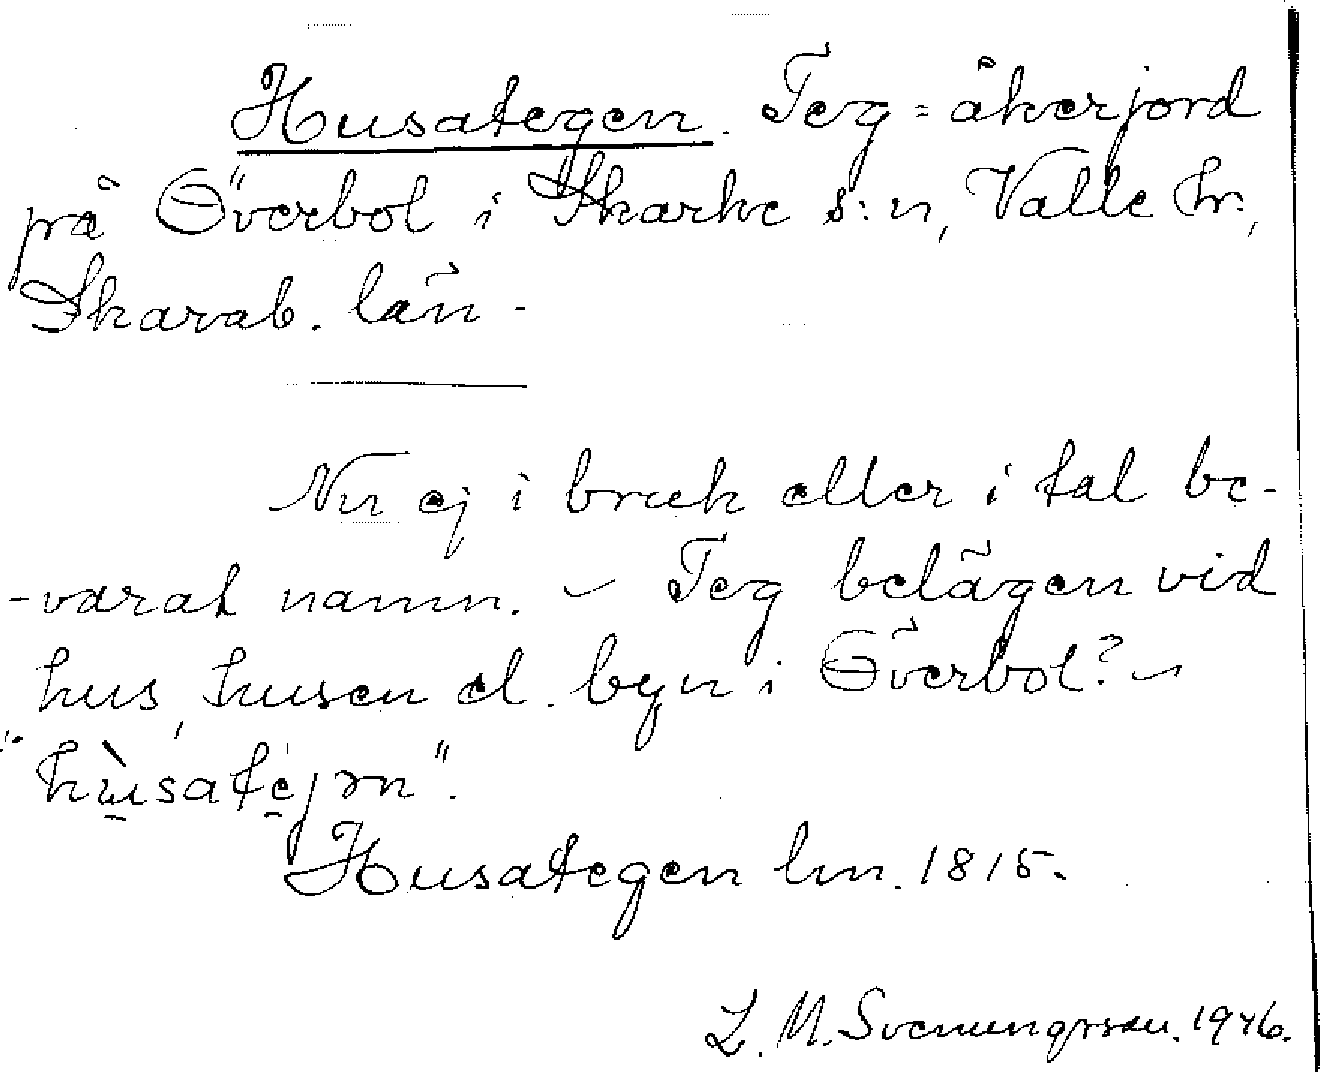 Husategen. Teg = åkerjord
på Överbol i Skarke s:n, Valle hr.,
Skarab. län -
Nu ej i bruk eller i tal be-
-varat namn. - Teg belägen vid
hus, husen el. byn i Överbol? -
"hùsatejrn".
Husategen lm. 1815.
L. M. Svenungsson. 1946.